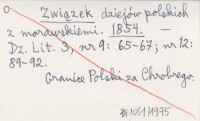 Związek dziejów polskich
z morawskiemi. 1854. —
Dz. Lit. 3, nr 9: 65-67; nr 12:
89-92.
Granice Polski za Chrobrego.
1081/1975